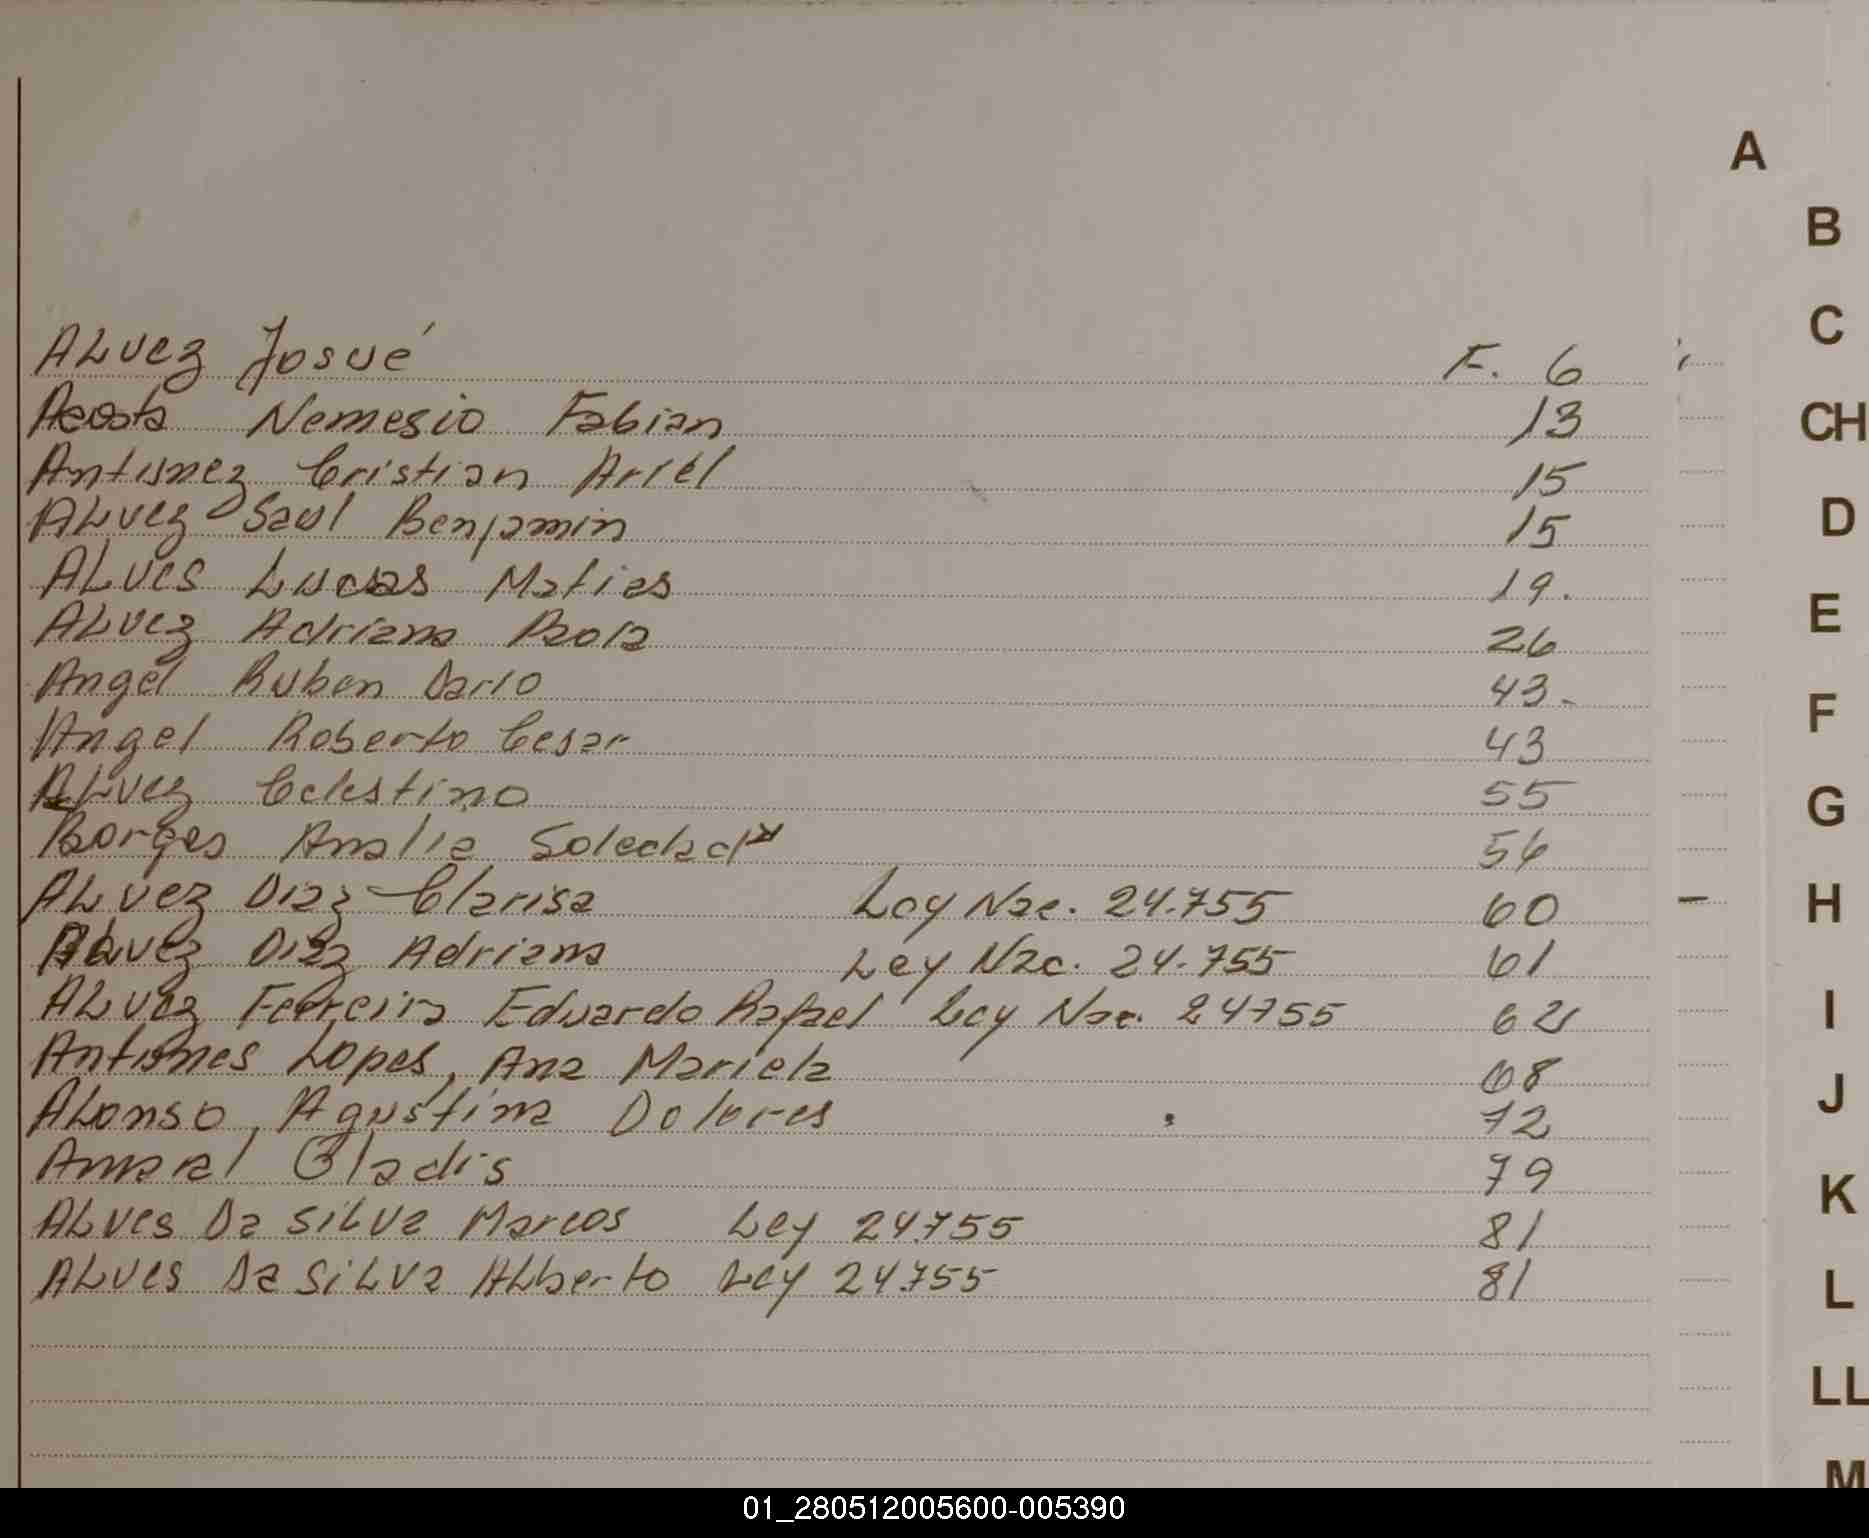 A
B
C
CH
D
E
F
G
H
I
J
K
L
LL
M
ALvez Josué F. 6
Acosta Nemesio Fabian 13
Antunez Cristian Ariel 15
ALvez Saul Benjamin 15
ALves Lucas Matias 19.
ALvez Adriana Paola 26
Angel Ruben Dario 43-
Angel Roberto Cesar 43
ALvez Celestino 55
Borges Analia Soledad 56
ALvez Diaz Clarisa Ley Nac. 24.755 60
ALvez Diaz Adriana Ley Nac. 24.755 61
ALvez Ferreira Eduardo Rafael Ley Nac. 24755 62
Antunes Lopes, Ana Mariela 68
ALonso, Agustina Dolores 72
Amaral Gladis 79
ALves Da SiLva Marcos Ley 24.755 81
ALves Da SiLva ALberto Ley 24.755 81
01_280512005600-005390